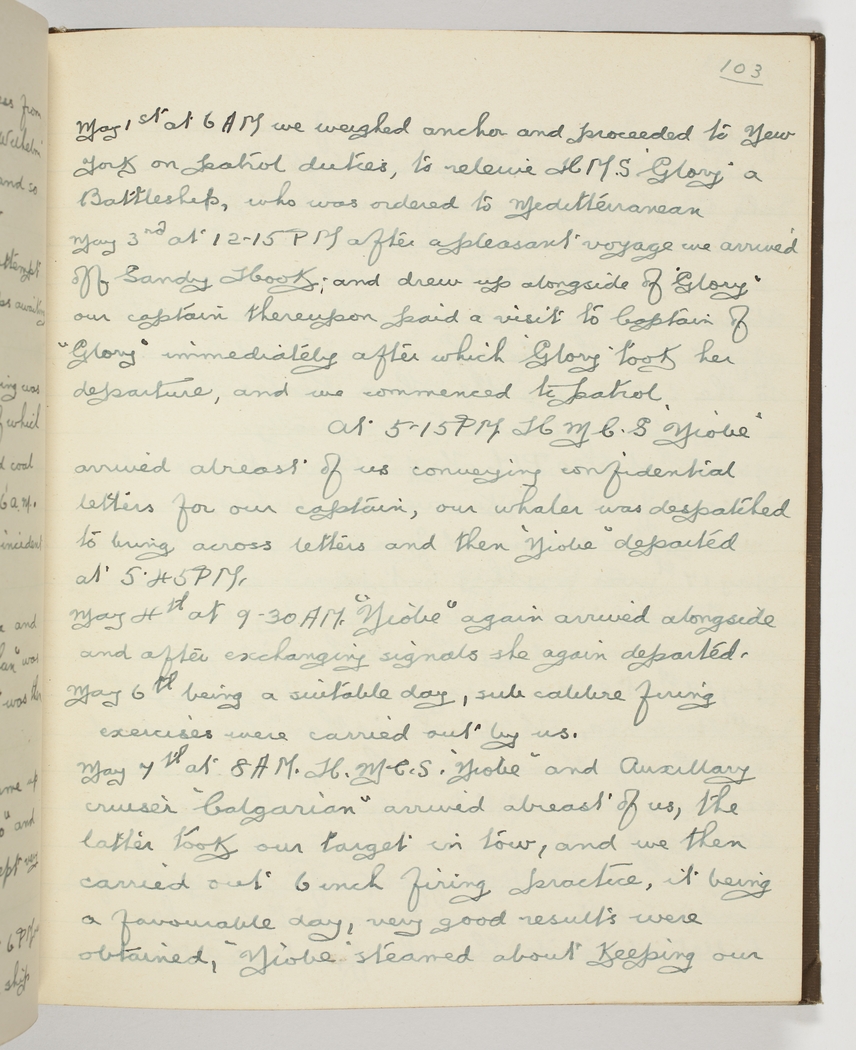 103
May 1st at 6 AM we weighed anchor and proceeded to New
York on patrol duties, to releive H M.S "Glory" a
Battleship, who was ordered to Meditterranean
May 3rd at 12-15 PM after a pleasant voyage we arrived
off Sandy Hook; and drew up alongside of "Glory"
our captain thereupon paid a visit to Captain of
"Glory" immediately after which "Glory" took her
departure, and we commenced to patrol,
At 5-15 PM H M C. S "Niobe"
arrived abreast of us conveying confidential
letters for our captain, our whaler was despatched
to bring across letters and then "Niobe" departed
at 5.45 PM.
May 4th at 9-30 AM. "Niobe" again arrived alongside
and after exchanging signals she again departed.
May 6th being a suitable day, sub calibre firing
exercises were carried out by us.
May 7th at 8 AM. H. M.C.S. "Niobe" and Auxillary
cruiser "Calgarian" arrived abreast of us, the
latter took our target in tow, and we then
carried out 6 inch firing practice, it being
a favourable day, very good results were
obtained, "Niobe" steamed about Keeping our
ces from
and so
attempt
ing was
of which
d coal
6 a.m.
incident
e and
was
was the
me up
and
ept very
6 PM
ship